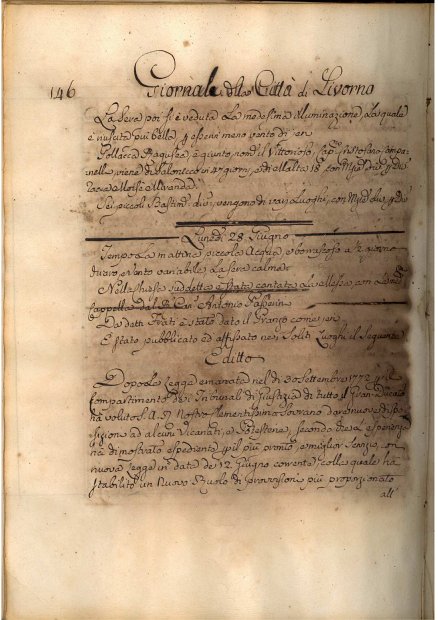 146 Giornale della Città di Livorno
La sera poi si è veduta la medesima illuminazione, la quale
è riuscita più bella p essersi meno vento di jeri
Pollacca Ragusea è giunto nom.ta il Vittorioso, Cap.
viene di Salonicco in 27 giorni, e di Malta 18 con
Sei piccoli Bastim.ti div. vengono di varj luoghi, con Mer. div. p div.
Lunedì 28 Giugno
Tempo la mattina piccola Acqua, e burrascoso a
duraro, e vento variabile la sera calma
Nella Chiesa suddetta è stata cantata la Messa
Cappella dal Antonio
Da detti Frati è stato dato il Pranzo come jeri
È stato pubblicato ed affissato nei Soliti Luoghi il Seguente
Editto
Dopo la Legge emanata nel dì 30 Settembre 1772 p il
Compartimento dei Tribunali di Giustizia di tutto il Gran-Ducato
ha voluto S. A. R. Nostro Clementissimo Sovrano dare nuove dispo-
sizioni ad alcuni Vicariati, e Potesterie, secondo che la esperien-
za dimostrato espediente p il più pronto, e miglior servizio, con
nuova Legge in data de 12 Giugno corrente; colla quale ha
stabilito un Nuovo Ruolo di Provvisioni più proporzionato
all'